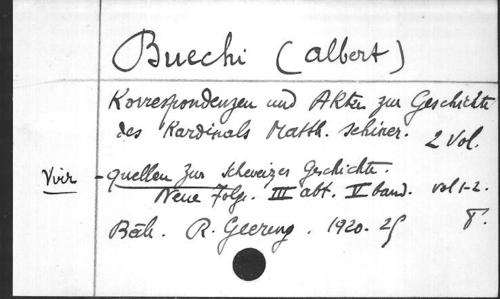 Buechi (Albert)
Korrespondenzen und Akten zur Geschichte
des Kardinals Matth. Schiner. 2 vol.
Voir - quellen zur Schweizer Geschichte.
Neue Folge. III abt. V band. vol 1-2.
Bâle. R. Geering. 1920-25 8°.